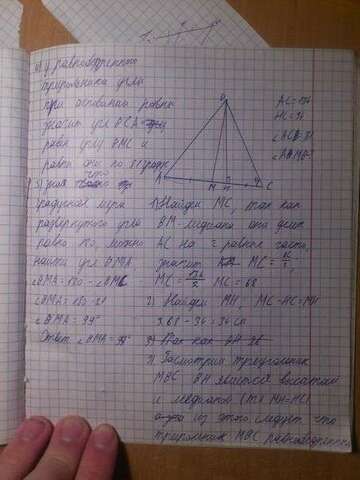 4) у равнобедренного
треугольника углы
при основании равны
значит угл BCA
равен углу BMC и
равны они по 81 град
5) зная что
градусная мера
развернутого угла
равна 180, можно
найти угл BMA
∠BMA = 180 - ∠BMC
∠BMA = 180 - 81
∠BMA = 99°
Ответ: ∠BMA = 99°
B
A
M
H
C
AC = 136
HC = 34
1) Найдём MC, так как
BM - медиана она делит
AC на 2 равные части,
значит MC = AC/2,
MC = 136/2 MC = 68
2) Найдём MH, MC - HC = MH
68 - 34 = 34 см
3) Так как BH
3) Рассмотрим треугольник
MBC BH является высотой
и медианой (т.к MH = HC)
из этого следует что
треугольник MBC равнобедренный